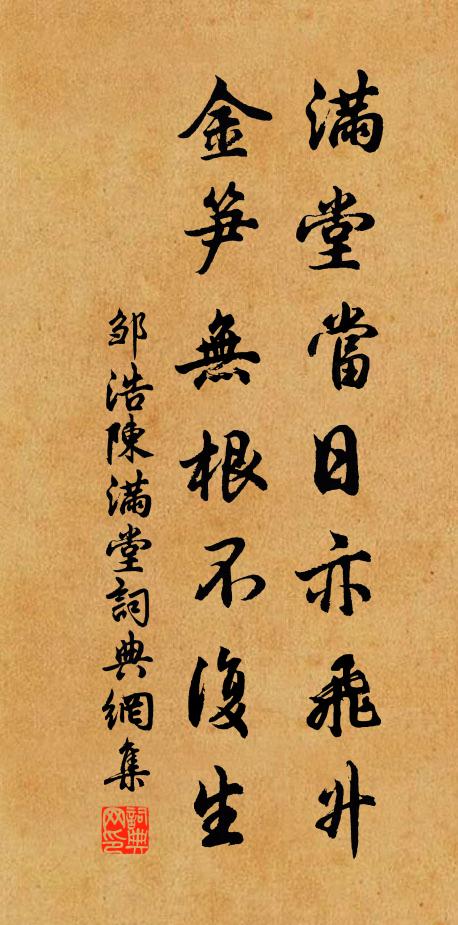 滿堂當日亦飛升
金笋無根不復生
邹浩陳滿堂詞典網集
詞典网印